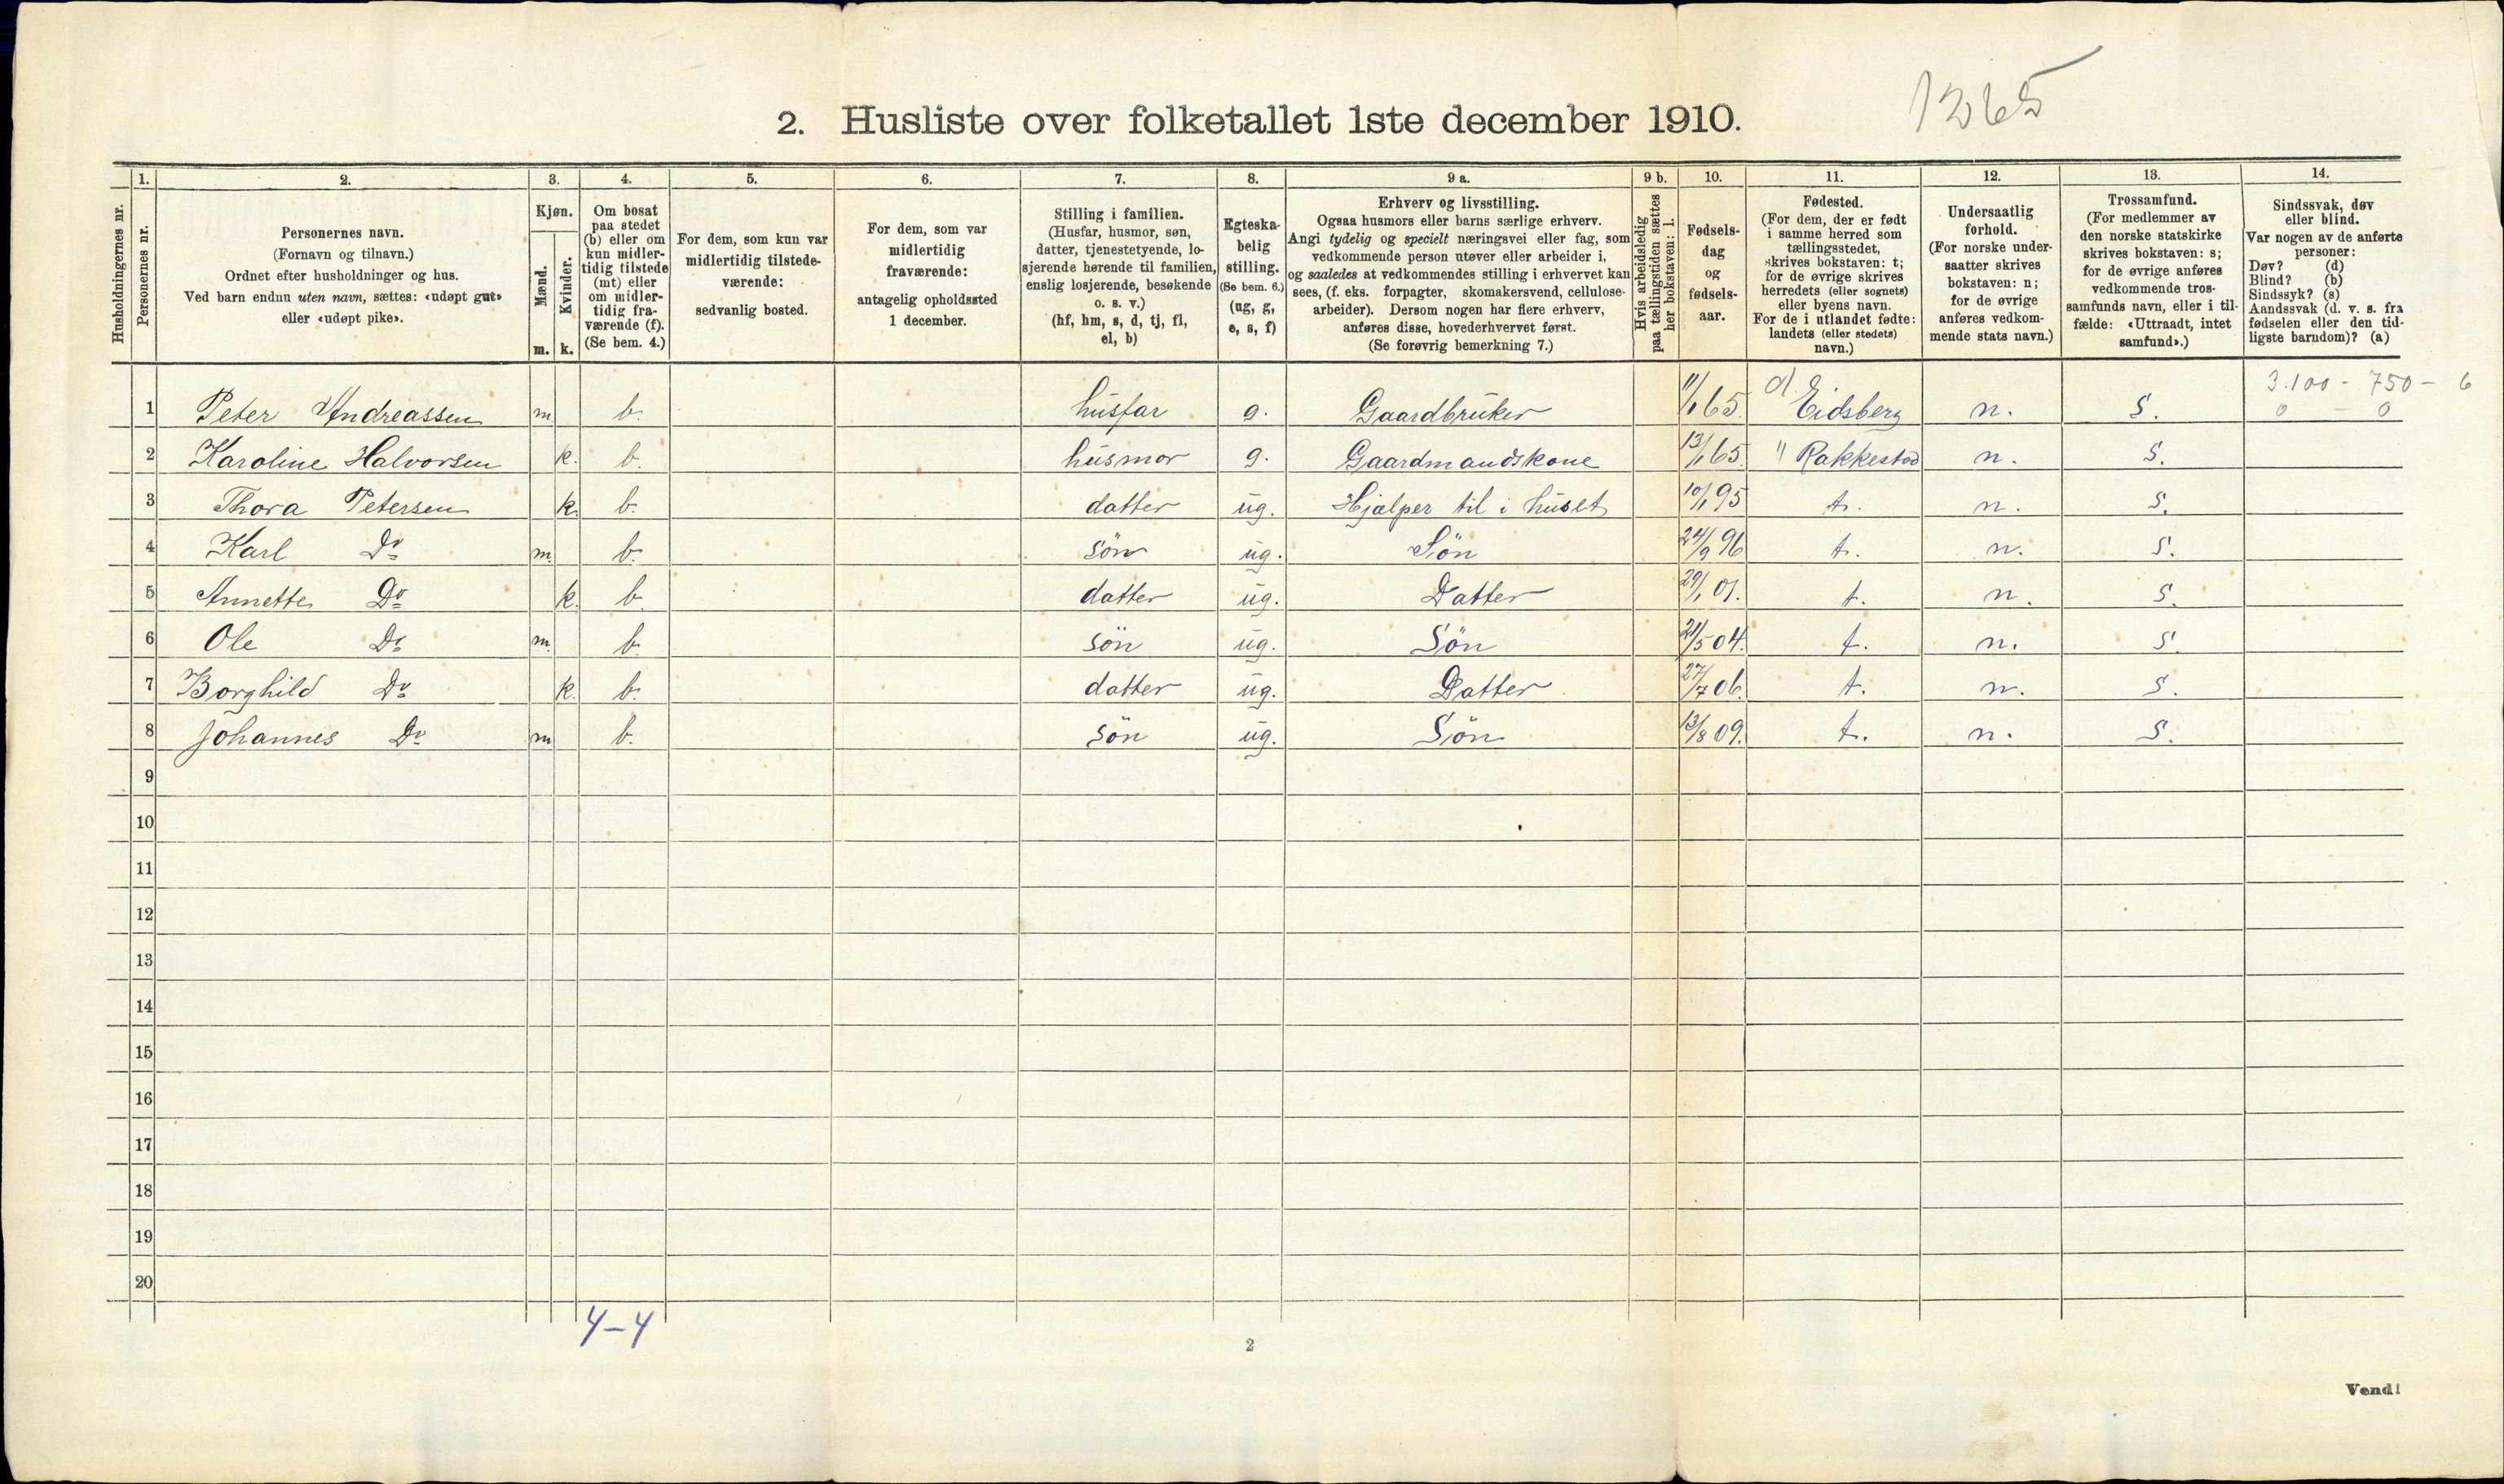 1265
2. Husliste over folketallet 1ste december 1910.
Husholdningernes nr.
1.
Personernes nr.
2.
Personernes navn.
(Fornavn og tilnavn.)
Ordnet efter husholdninger og hus.
Ved barn endnu uten navn, sættes: «udøpt gut»
eller «udøpt pike».
3.
Kjøn.
Mænd.
Kvinder.
m. k.
4.
Om bosat
paa stedet
(b) eller om
kun midler-
tidig tilstede
(mt) eller
om midler-
tidig fra-
værende (f).
(Se bem. 4.)
5.
For dem, som kun var
midlertidig tilstede-
værende:
sedvanlig bosted.
6.
For dem, som var
midlertidig
fraværende:
antagelig opholdssted
1 december.
7.
Stilling i familien.
(Husfar, husmor, søn,
datter, tjenestetyende, lo-
sjerende hørende til familien,
enslig losjerende, besøkende
o. s. v.)
(hf, hm, s, d, tj, fl,
el, b)
8.
Egteska-
belig
stilling.
(Se bem. 6.)
(ug, g,
e, s, f)
9 a.
Erhverv og livsstilling.
Ogsaa husmors eller barns særlige erhverv.
Angi tydelig og specielt næringsvei eller fag, som
vedkommende person utøver eller arbeider i,
og saaledes at vedkommendes stilling i erhvervet kan
sees, (f. eks. forpagter, skomakersvend, cellulose-
arbeider). Dersom nogen har flere erhverv,
anføres disse, hovederhvervet først.
(Se forøvrig bemerkning 7.)
9 b.
Hvis arbeidsledig
paa tællingstiden sættes
her bokstaven: l.
10.
Fødsels-
dag
og
fødsels-
aar.
11.
Fødested.
(For dem, der er født
i samme herred som
tællingsstedet,
skrives bokstaven: t;
for de øvrige skrives
herredets (eller sognets)
eller byens navn.
For de i utlandet fødte:
landets (eller stedets)
navn.)
12.
Undersaatlig
forhold.
(For norske under-
saatter skrives
bokstaven: n;
for de øvrige
anføres vedkom-
mende stats navn.)
13.
Trossamfund.
(For medlemmer av
den norske statskirke
skrives bokstaven: s;
for de øvrige anføres
vedkommende tros-
samfunds navn, eller i til-
fælde: «Uttraadt, intet
samfund».)
14.
Sindssvak, døv
eller blind.
Var nogen av de anførte
personer:
Døv? (d)
Blind? (b)
Sindssyk? (s)
Aandssvak (d. v. s. fra
fødselen eller den tid-
ligste barndom)? (a)
3.100 - 750 - 6
1 Peter Andreassen m b. husfar g. Gaardbruker 11/1 65. Eidsberg n. S. 0 - 0
2 Karoline Halvorsen k. b. husmor g. Gaardmandskone 13/1 65. " Rakkestad n. S.
3 Thora Petersen k. b. datter ug. Hjælper til i huset 10/1 95 t. n. S.
4 Karl Do m. b. sön ug. Sön 24/9 96 t. n. S.
5 Annette Do k. b. datter ug. Datter 29/1 01. t. n. S.
6 Ole Do m. b. sön ug. Sön 21/5 04. t. n. S.
7 Borghild Do k. b. datter ug. Datter 27/7 06. t. n. S.
8 Johannes Do m b. sön ug. Sön 13/8 09. t. n. S.
9
10
11
12
13
14
15
16
17
18
19
20
4-4
2
Vend!